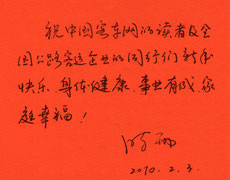 祝中国客车网的读者及全
国公路客运企业的同行们新年
快乐、身体健康、事业有成、家
庭幸福!
2010.2.3.